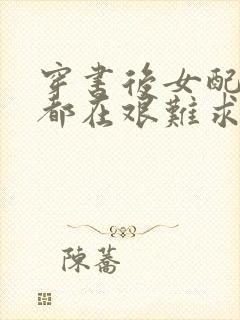 穿書後女配
都在艱難求
陳蕎